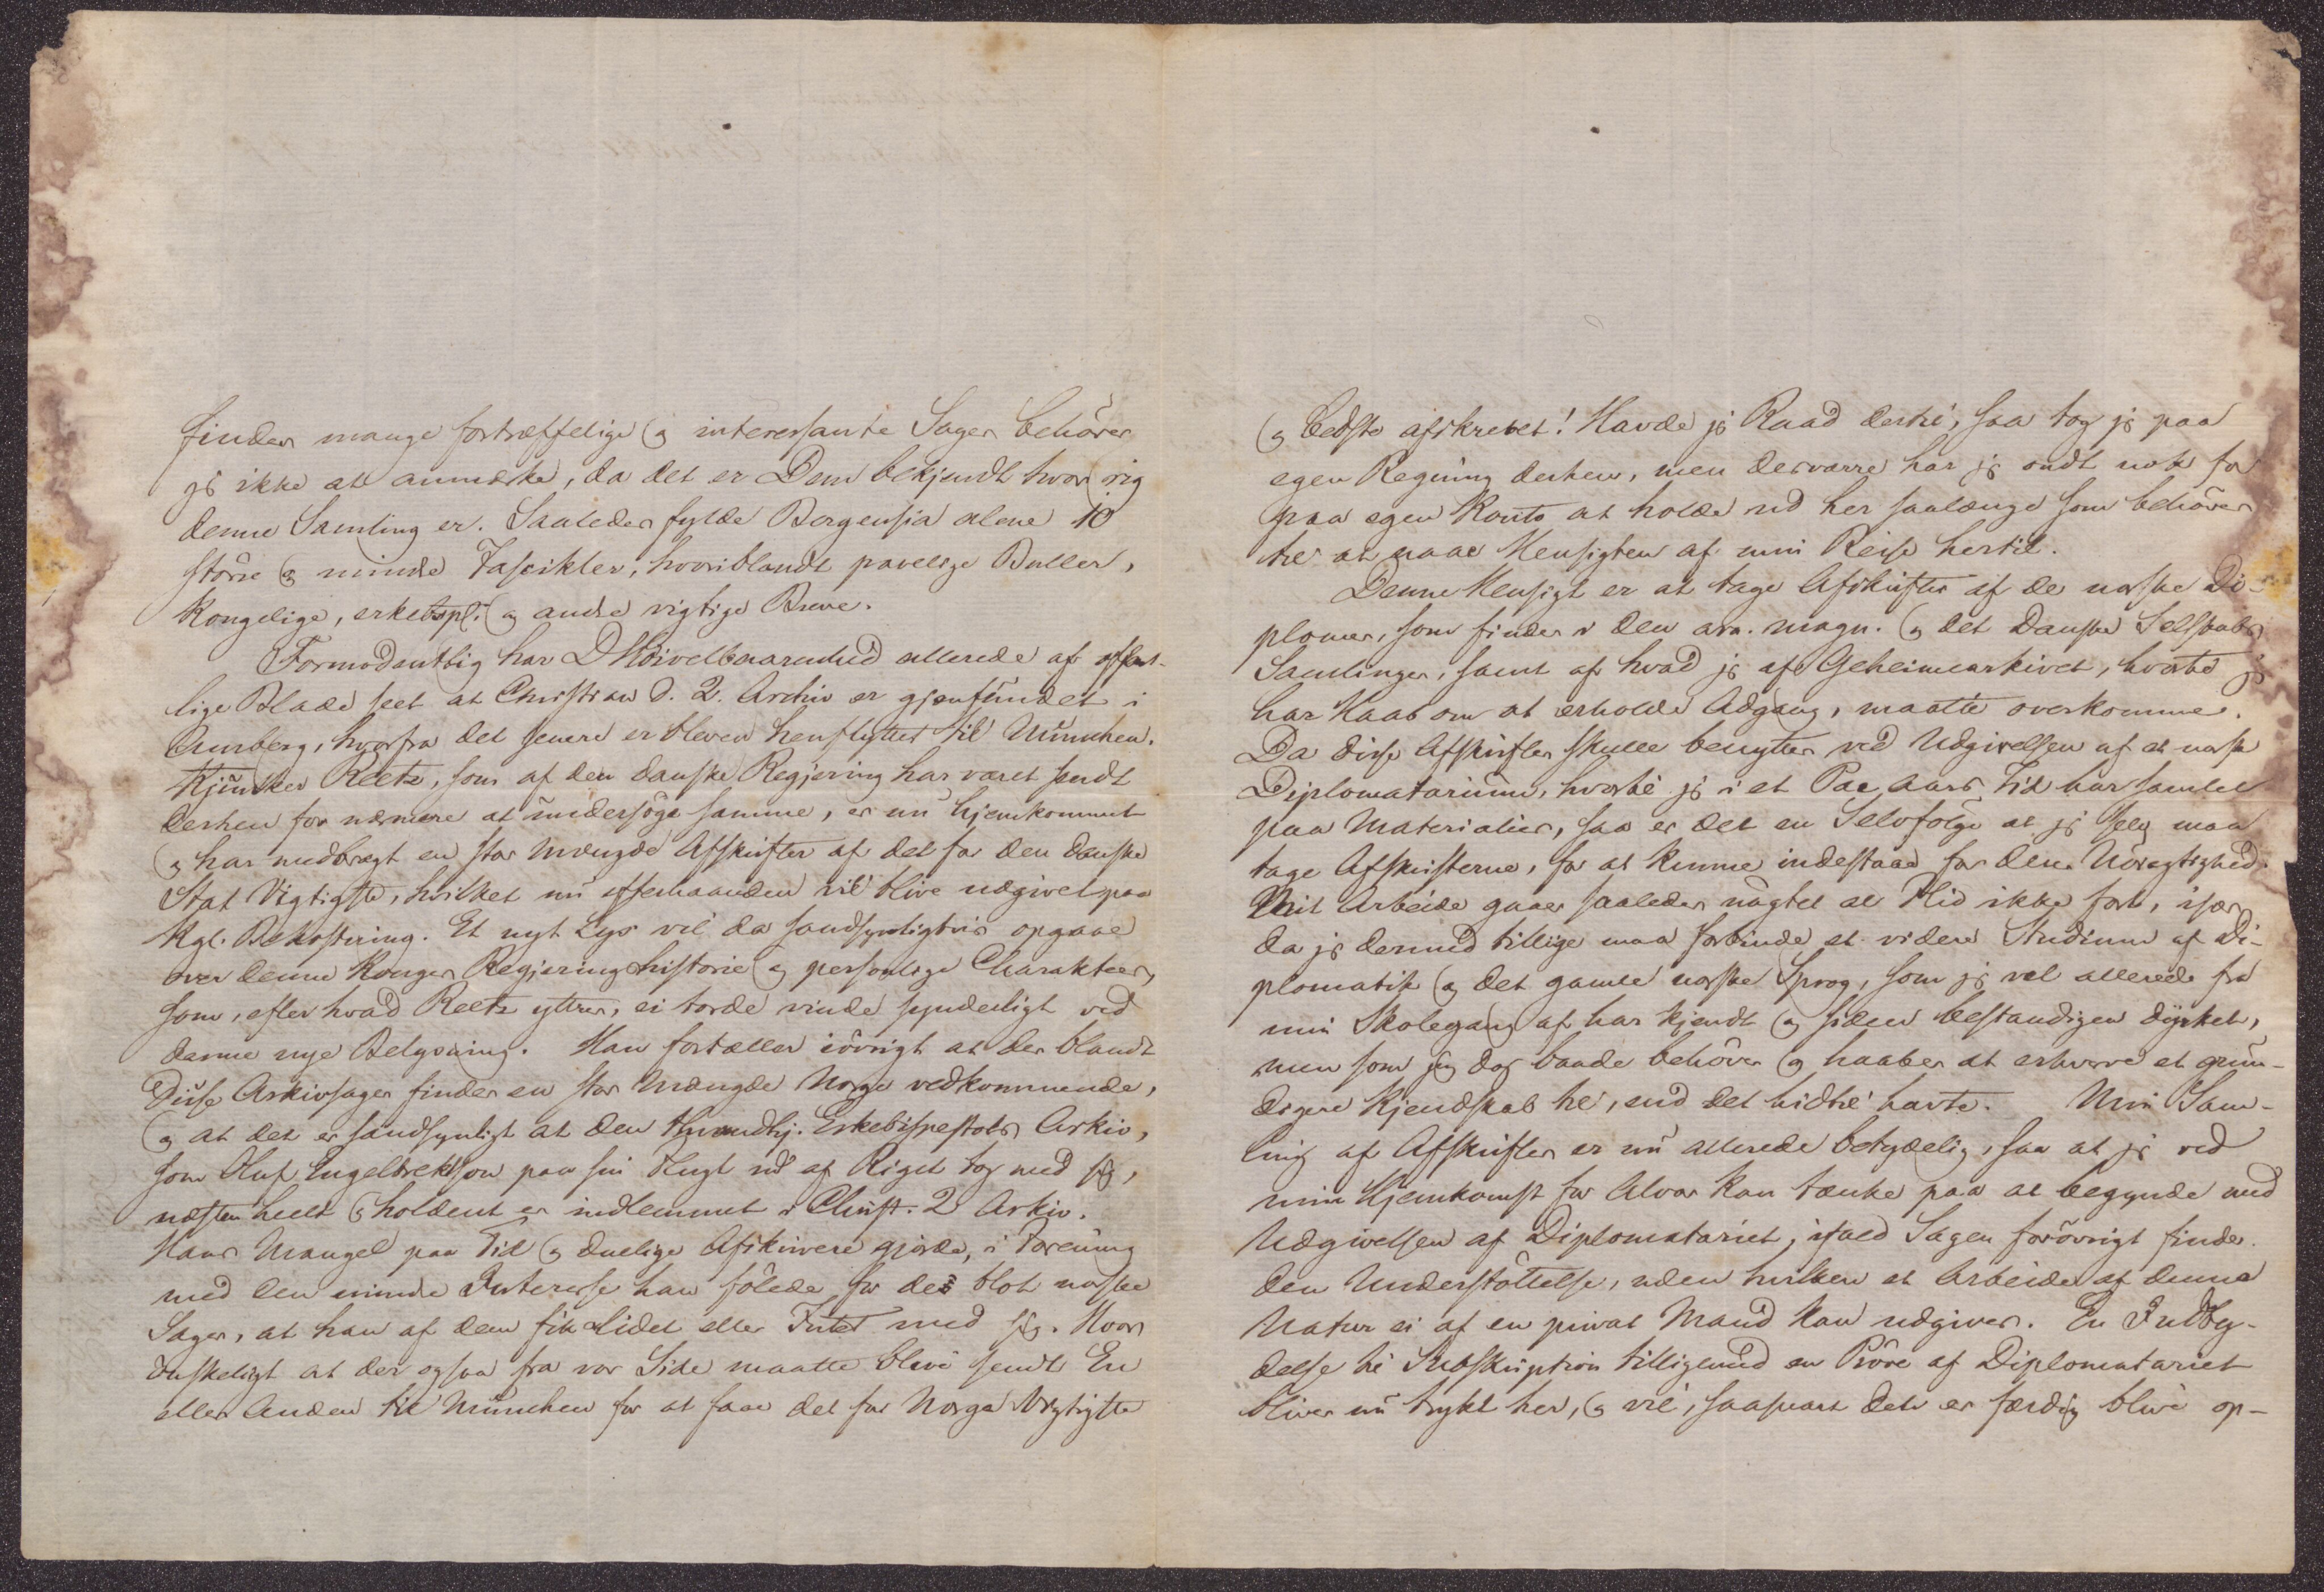 findes mange fortræffelige og interessante Sager behöver
jeg ikke at anmærke, da det er Dem bekjendt hvor rig
denne Samling er. Saaledes fylde Bergensia alene 10
större og mindre Fascikler, hvoriblandt pavelige Buller,
kongelige, erkebspl. og andre vigtige Breve.
Formodentlig har DHöivelbaarenhed allerede af offent-
lige Blade seet at Christian d. 2. Archiv er gjenfundet i
Amberg, hvorfra det senere er bleven henflyttet til München.
Kjunker Reetz, som af den danske Regjering har været sendt
derhen for nærmere at undersöge samme, er nu hjemkommet
og har medbragt en stor Mængde Afskrifter af det for den danske
Stat Vigtigste, hvilket nu efterhaanden vil blive udgivet paa
Kgl. Bekostning. Et nyt Lys vil da sandsynligtvis opgaae
over denne Konges Regjeringshistorie og personlige Charakteer,
som, efter hvad Reetz yttrer, ei torde vinde synderligt ved
denne nye Belysning. Han fortæller iövrigt at der blandt
Disse Arkivsager findes en stor Mængde Norge vedkommende,
og at det er sandsynligt at den throndhj. Erkebispestols Arkiv,
som Oluf Engelbrektson paa sin Flugt ud af Riget tog med sig,
næsten heelt og holdent er indlemmet i Christ. 2 Arkiv.
Hans Mangel paa Tid og duelige Afskrivere gjorde, i Forening
med den mindre Interesse han fölede for de blot norske
Sager, at han af dem fik Lidet eller Intet med sig. Hvor
önskeligt at der ogsaa fra vor Side maatte blive sendt En
eller Anden til München for at faae det for Norge Vigtigste
og bedste afskrevet! Havde jeg Raad dertil, saa tog jeg paa
egen Regning derhen, men desværre har jeg ondt nok for
paa egen Konto at holde ud her saalænge som behöves
til at naae Hensigten af min Reise hertil.
Denne Hensigt er at tage Afskrifter af de norske Di-
plomer, som findes i den arn. magn. og det danske Selskabs
Samlinger, samt af hvad jeg af Geheimearkivet, hvortil jeg
har Haab om at erholde Adgang, maatte overkomme.
Da disse Afskrifter skulle benyttes ved Udgivelsen af et norsk
Diplomatarium, hvortil jeg i et Par Aars Tid har samlet
paa Materialier, saa er det en Selvfölge at jeg selv maa
tage Afskrifterne, for at kunne indestaae for deres Nöiagtighed.
Mit Arbeide gaaer saaledes uagtet al Flid ikke fort, især
da jeg dermed tillige maa forbinde et videre Studium af Di-
plomatik og det gamle norske Sprog, som jeg vel allerede fra
min Skolegang af har kjendt og siden bestandigen dyrket,
men som jeg dog baade behöver og haaber at erhverve et grun-
digere Kjendskab til, end det hidtil havte. Min Sam-
ling af Afskrifter er nu allerede betydelig, saa at jeg ved
min Hjemkomst for Alvor kan tænke paa at begynde med
Udgivelsen af Diplomatariet, ifald Sagen forövrigt finder
den Understöttelse, uden hvilken et Arbeide af denne
Natur ei af en privat Mand kan udgives. En Indby-
delse til Subskription tilligemed en Pröve af Diplomatariet
bliver nu trykt her, og vil, saasnart dette er færdig blive op-